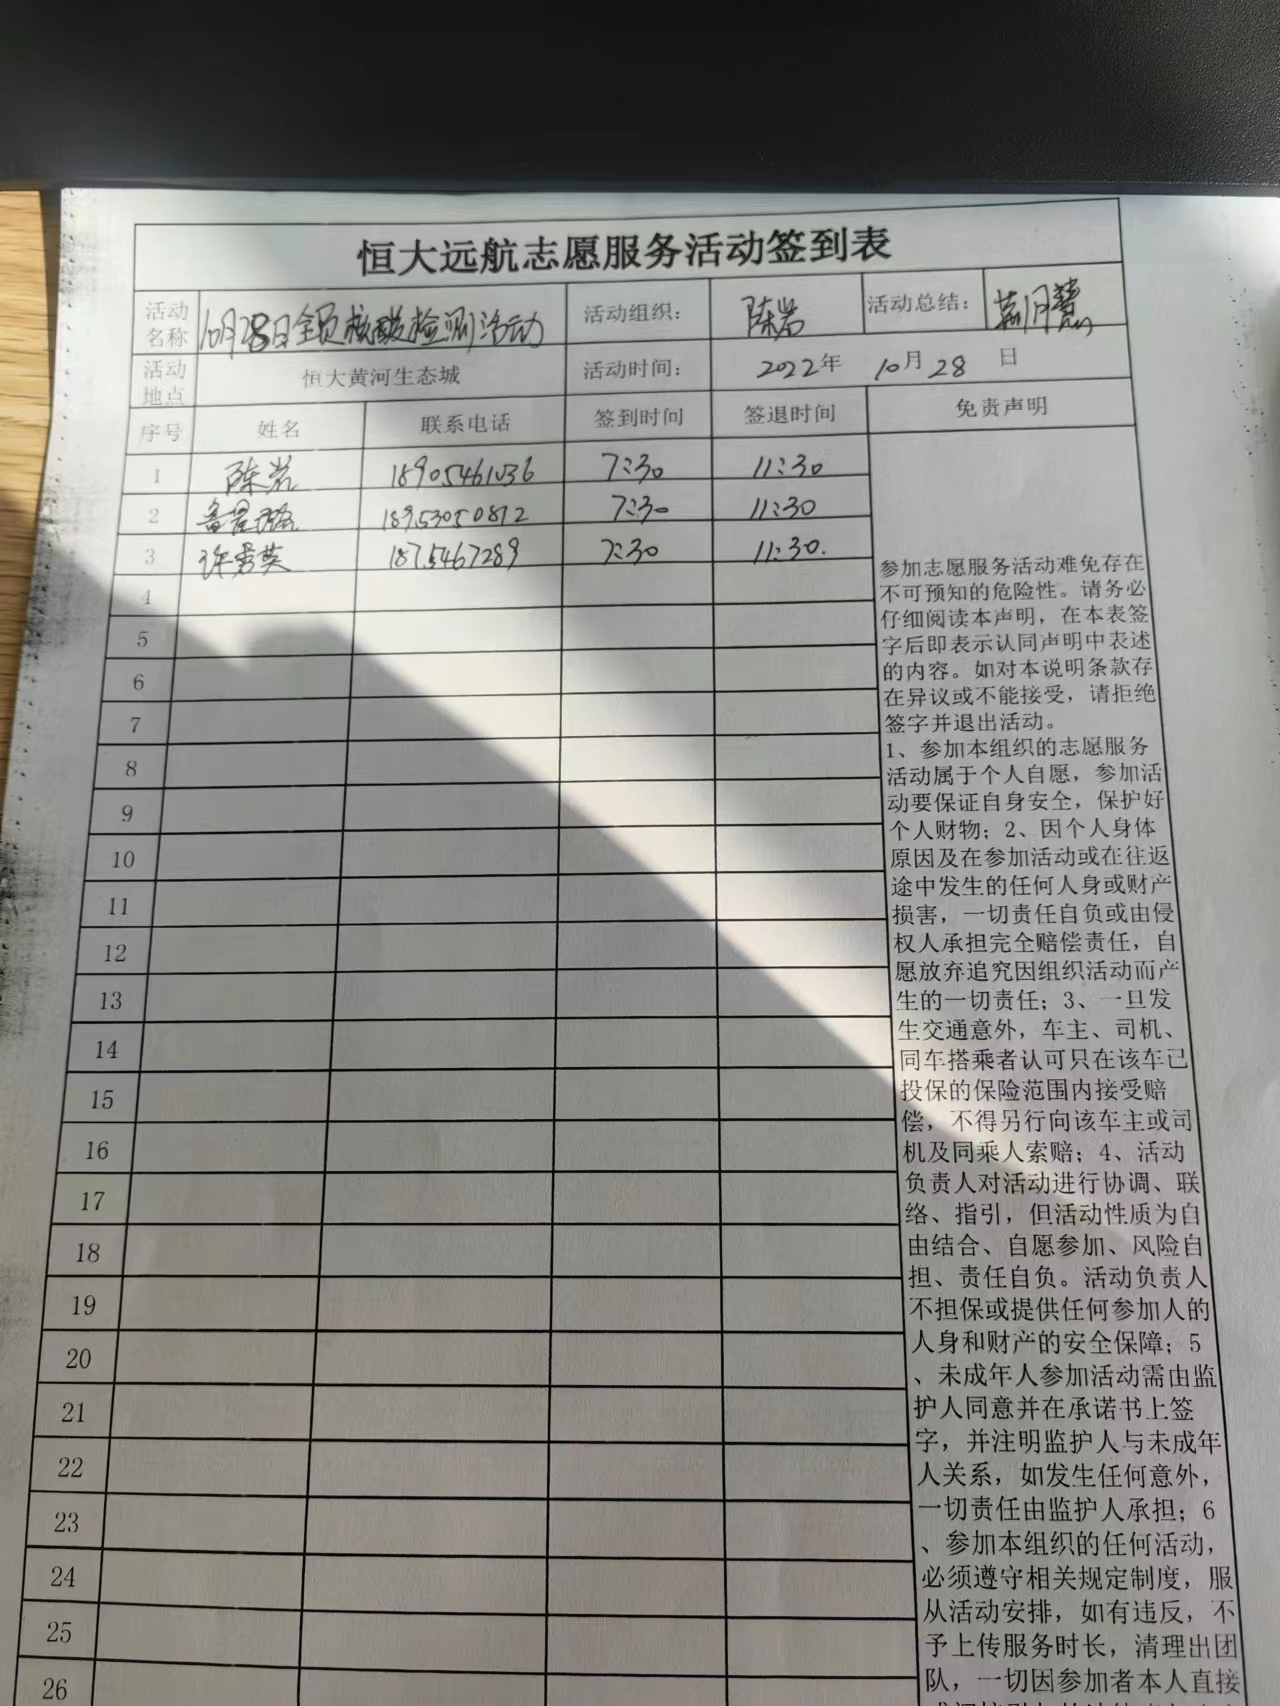 恒大远航志愿服务活动签到表
活动名称 10月28日全员核酸检测活动 活动组织： 陈岩 活动总结：
活动地点 恒大黄河生态城 活动时间： 2022年 10月28 日
序号 姓名 联系电话 签到时间 签退时间 免责声明
1 陈岩 18905461036 7:30 11:30
2 18953050812 7:30 11:30
3 许秀英 7:30 11:30.
4
5
6
7
8
9
10
11
12
13
14
15
16
17
18
19
20
21
22
23
24
25
26
参加志愿服务活动难免存在
不可预知的危险性。请务必
仔细阅读本声明，在本表签
字后即表示认同声明中表述
的内容。如对本说明条款存
在异议或不能接受，请拒绝
签字并退出活动。
1、参加本组织的志愿服务
活动属于个人自愿，参加活
动要保证自身安全，保护好
个人财物；2、因个人身体
原因及在参加活动或在往返
途中发生的任何人身或财产
损害，一切责任自负或由侵
权人承担完全赔偿责任，自
愿放弃追究因组织活动而产
生的一切责任；3、一旦发
生交通意外，车主、司机、
同车搭乘者认可只在该车已
投保的保险范围内接受赔
偿，不得另行向该车主或司
机及同乘人索赔；4、活动
负责人对活动进行协调、联
络、指引，但活动性质为自
由结合、自愿参加、风险自
担、责任自负。活动负责人
不担保或提供任何参加人的
人身和财产的安全保障；5
、未成年人参加活动需由监
护人同意并在承诺书上签
字，并注明监护人与未成年
人关系，如发生任何意外，
一切责任由监护人承担；6
、参加本组织的任何活动，
必须遵守相关规定制度，服
从活动安排，如有违反，不
予上传服务时长，清理出团
队，一切因参加者本人直接